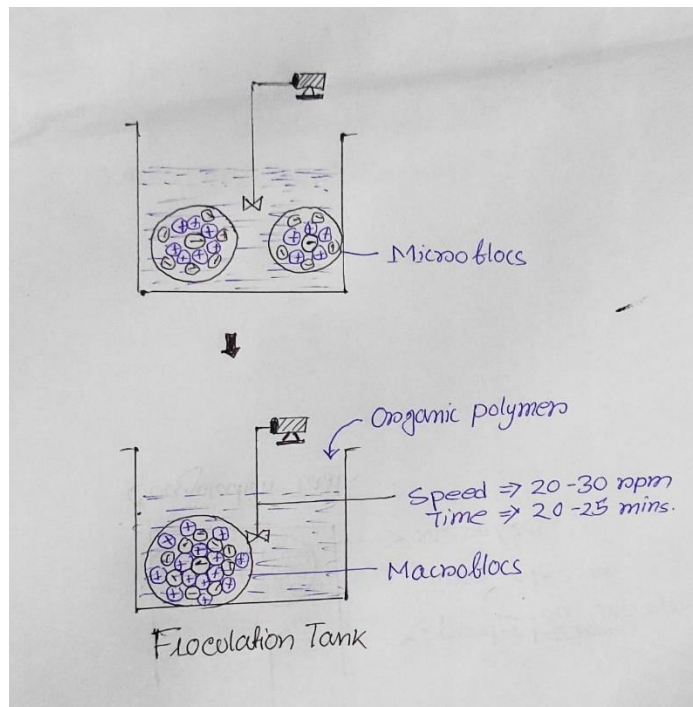 Microflocs
Organic polymers
Speed ⇒ 20-30 rpm
Time ⇒ 20-25 mins.
Macroflocs
Flocculation Tank